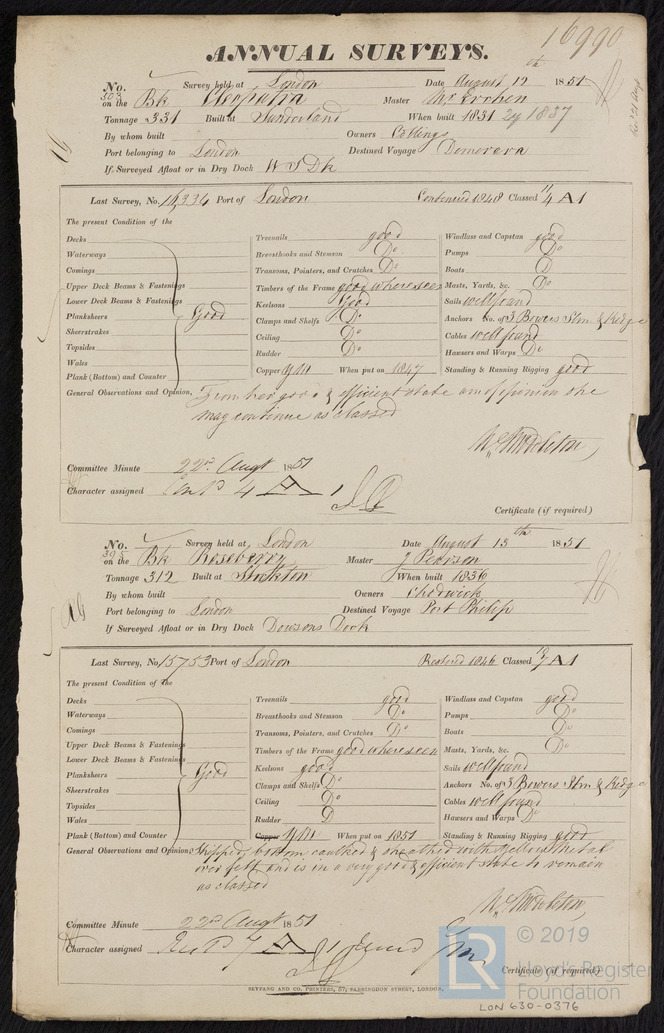 16990
ANNUAL SURVEYS.
No. 303 Survey held at London Date August 12th 1851
on the Bk Cleopatra Master Mr
Tonnage 331 Built at Sunderland When built 1831 1837
By whom built Owners Collings
Port belonging to London Destined Voyage Demerera
If Surveyed Afloat or in Dry Dock W I Dk
Last Survey, No. 16,336 Port of London Continued 1848 Classed 4 A 1
The present Condition of the
Decks
Waterways
Comings
Upper Deck Beams & Fastenings
Lower Deck Beams & Fastenings
Planksheers Good
Sheerstrakes
Topsides
Wales
Plank (Bottom) and Counter
Treenails good
Breasthooks and Stemson Do
Transoms, Pointers, and Crutches Do
Timbers of the Frame good where seen
Keelsons Good
Clamps and Shelfs Do
Ceiling Do
Rudder Do
Copper YM When put on 1847
Windlass and Capstan good
Pumps Do
Boats D
Masts, Yards, &c. Do
Sails well found
Anchors No. of 3 Bowers Stm & Kedge
Cables well found
Hawsers and Warps Do
Standing & Running Rigging good
General Observations and Opinion, From her good & efficient state am of opinion she
may continue as classed
Wm Middleton
Committee Minute 22nd Augt 1851
Character assigned 4 A 1
Certificate (if required)
No. 305 Survey held at London Date August 13th 1851
on the Bk Roseberry Master J Pearson
Tonnage 312 Built at Stockton When built 1836
By whom built Owners Chadwick
Port belonging to London Destined Voyage Port Philip
If Surveyed Afloat or in Dry Dock Dowsons Dock
Last Survey, No. 15753 Port of London Restored 1846 Classed 7 A 1
The present Condition of the
Decks
Waterways
Comings
Upper Deck Beams & Fastenings
Lower Deck Beams & Fastenings
Planksheers Good
Sheerstrakes
Topsides
Wales
Plank (Bottom) and Counter
Treenails good
Breasthooks and Stemson Do
Transoms, Pointers, and Crutches Do
Timbers of the Frame good where seen
Keelsons good
Clamps and Shelfs Do
Ceiling Do
Rudder D
Copper YM When put on 1851
Windlass and Capstan good
Pumps Do
Boats Do
Masts, Yards, &c. Do
Sails well found
Anchors No. of 3 Bowers Stm & Kedge
Cables well found
Hawsers and Warps Do
Standing & Running Rigging good
General Observations and Opinion, Stripped, bottom caulked & sheathed with yellow Metal
over felt and is in a very good & efficient state to remain
as classed
Wm Middleton
Committee Minute 22d Augt 1851
Character assigned 7 A 1
Certificate (if required)
SEYFANG AND CO. PRINTERS, 57, FARRINGDON STREET, LONDON.
LR © 2019
Lloyd's Register
Foundation
LON 630-0376